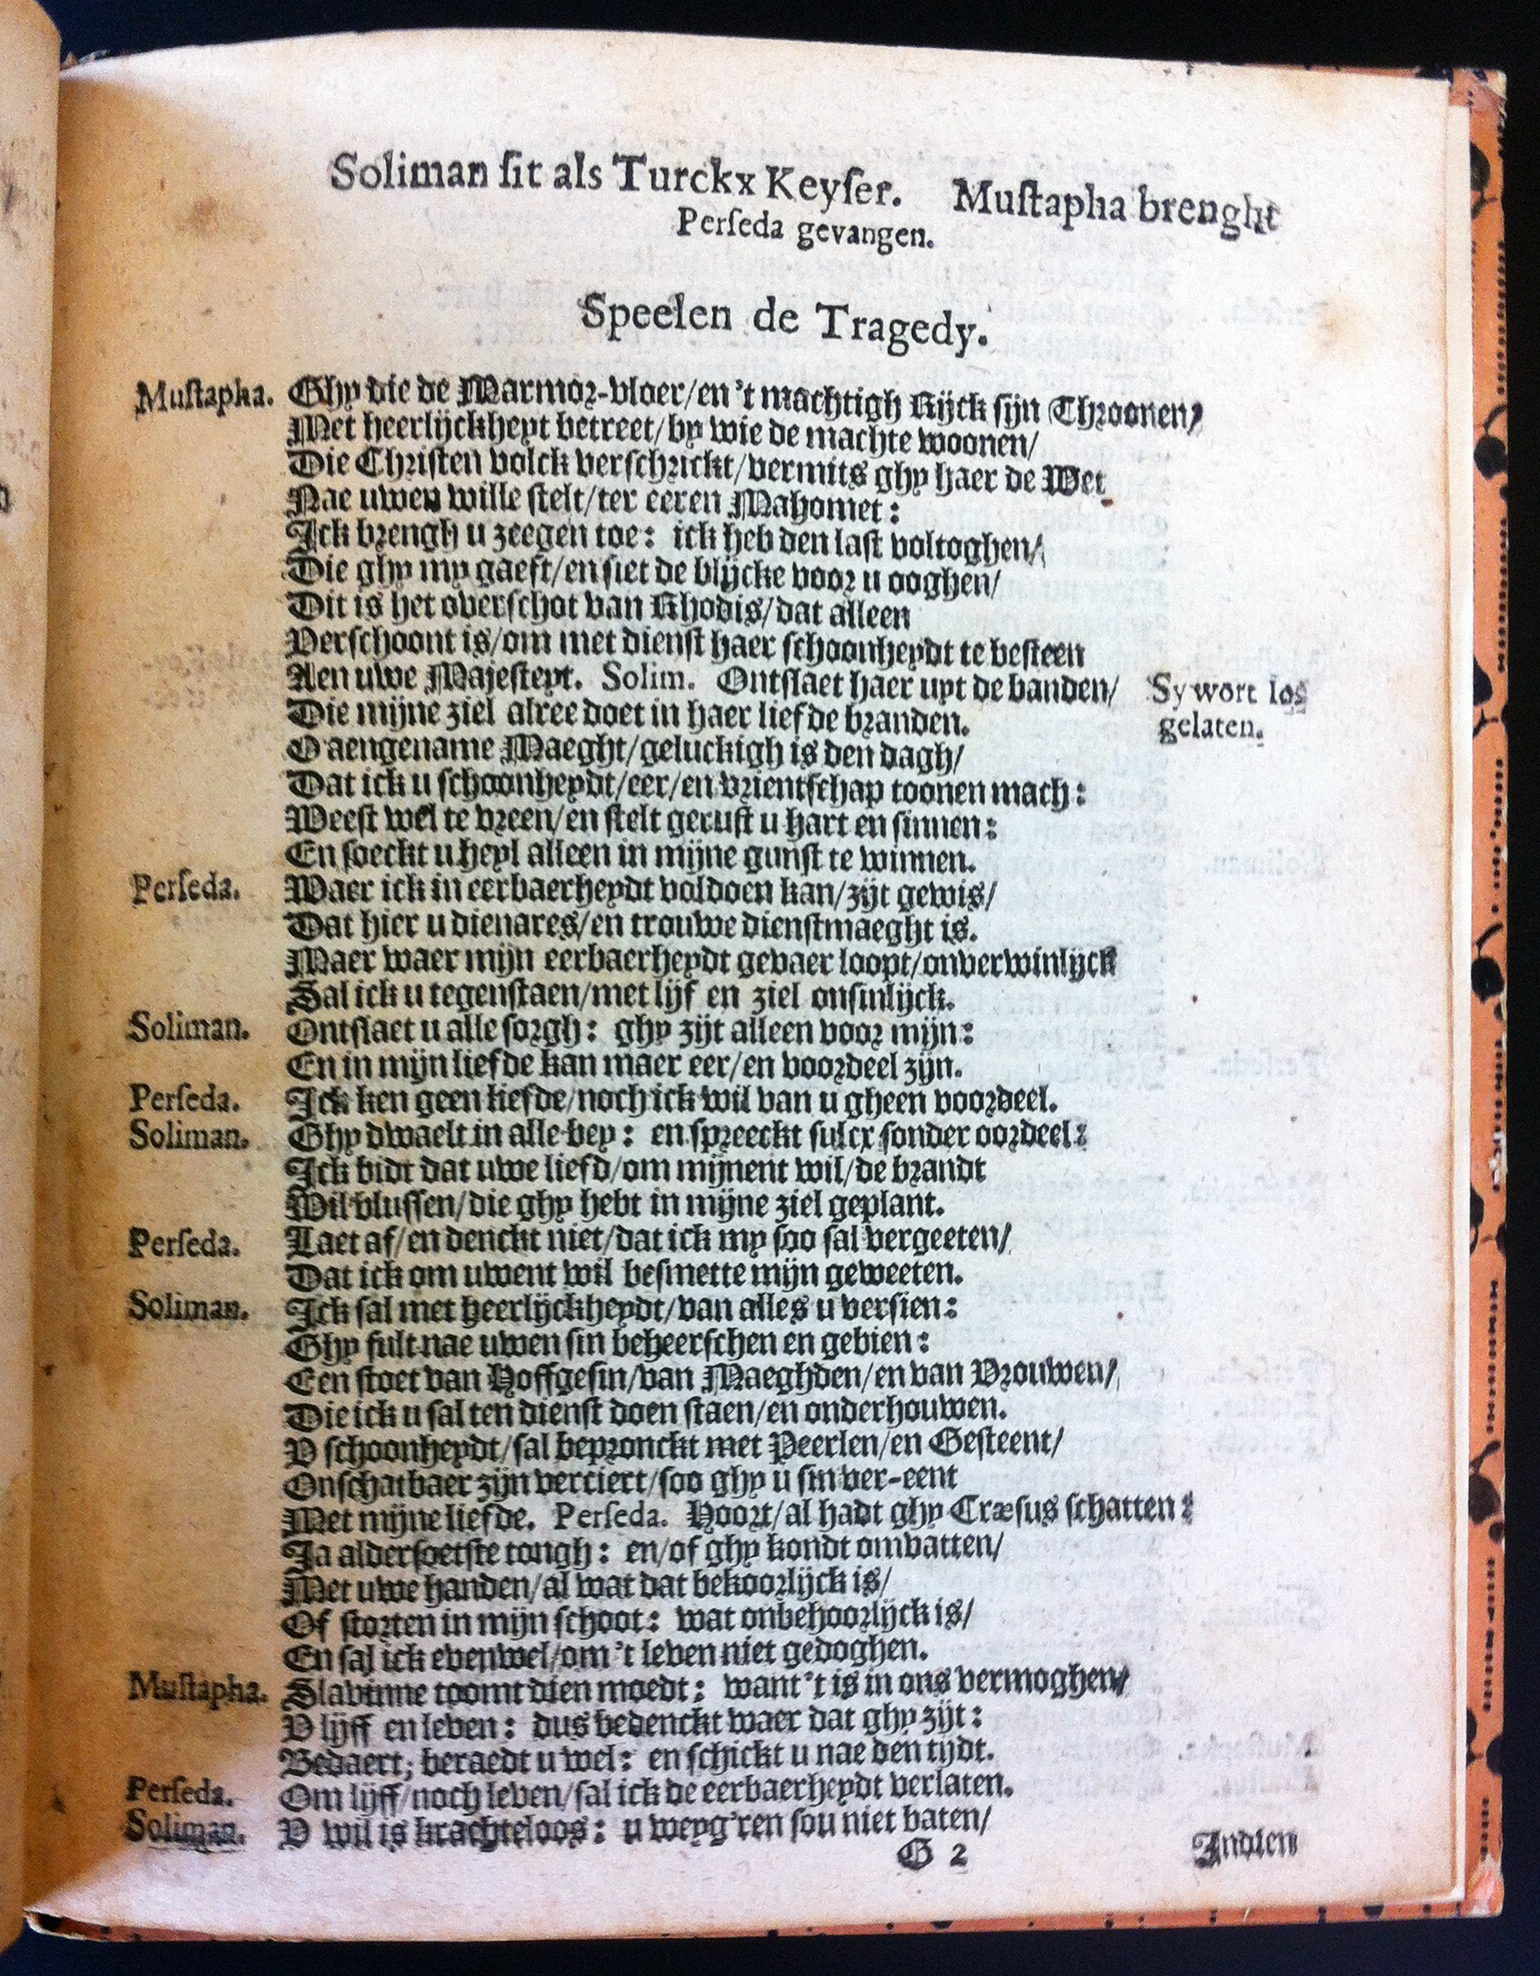 Soliman ſit als Turckx Keyſer. Muſtapha brenght
Perſeda gevangen.
Speelen de Tragedy.
Muſtapha. Ghy die de Marmor-vloer/en 't machtigh Rijck ſijn Throonen/
Met heerlijckheyt betreet/by wie de machte woonen/
Die Chriſten volck verſchrickt/vermits ghy haer de Wet
Nae uwen wille ſtelt/ter eeren Mahomet:
Ick brengh u zeegen toe: ick heb den laſt voltoghen/
Die ghy my gaeft/en ſiet de blijcke voor u ooghen/
Dit is het overſchot van Rhodis/dat alleen
Verſchoont is/om met dienſt haer ſchoonheydt te beſteen
Aen uwe Majeſteyt. Solim. Ontſlaet haer uyt de banden/ Sy wort los
Die mijne ziel alree doet in haer liefde branden. gelaten.
O aengename Maeght/geluckigh is den dagh/
Dat ick u ſchoonheydt/eer/en vrientſchap toonen mach:
Weeſt wel te vreen/en ſtelt geruſt u hart en ſinnen:
En ſoeckt u heyl alleen in mijne gunſt te winnen.
Perſeda. Waer ick in eerbaerheydt voldoen kan/zijt gewis/
Dat hier u dienares/en trouwe dienſtmaeght is.
Maer waer mijn eerbaerheydt gevaer loopt/onverwinlijck
Sal ick u tegenſtaen/met lijf en ziel onſinlijck.
Soliman. Ontſlaet u alle ſorgh: ghy zijt alleen voor mijn:
En in mijn liefde kan maer eer/en voordeel zijn.
Perſeda. Ick ken geen liefde/noch ick wil van u gheen voordeel.
Soliman. Ghy dwaelt in alle bey: en ſpreeckt ſulcx ſonder oordeel:
Ick bidt dat uwe liefd/om mijnent wil/de brandt
Wil bluſſen/die ghy hebt in mijne ziel geplant.
Perſeda. Laet af/en denckt niet/dat ick my ſoo ſal vergeeten/
Dat ick om uwent wil beſmette mijn geweeten.
Soliman. Ick ſal met heerlijckheydt/van alles u verſien:
Ghy ſult nae uwen ſin beheerſchen en gebien:
Een ſtoet van Hoffgeſin/van Maeghden/en van Vrouwen/
Die ick u ſal ten dienſt doen ſtaen/en onderhouwen.
V ſchoonheydt/ſal bepronckt met Peerlen/en Geſteent/
Onſchatbaer zijn verciert/ſoo ghy u ſin ver-eent
Met mijne liefde. Perſeda. Hoort/al hadt ghy Cræſus ſchatten:
Ja alderſoetſte tongh: en/of ghy kondt omvatten/
Met uwe handen/al wat dat bekoorlijck is/
Of ſtorten in mijn ſchoot: wat onbehoorlijck is/
En ſal ick evenwel/om 't leven niet gedoghen.
Muſtapha. Slavinne toomt dien moedt: want 't is in ons vermoghen/
V lijff en leven: dus bedenckt waer dat ghy zijt:
Bedaert; beraedt u wel: en ſchickt u nae den tijdt.
Perſeda. Om lijff/noch leven/ſal ick de eerbaerheydt verlaten.
Soliman. V wil is krachteloos: u weyg'ren ſou niet baten/
G 2 Indien